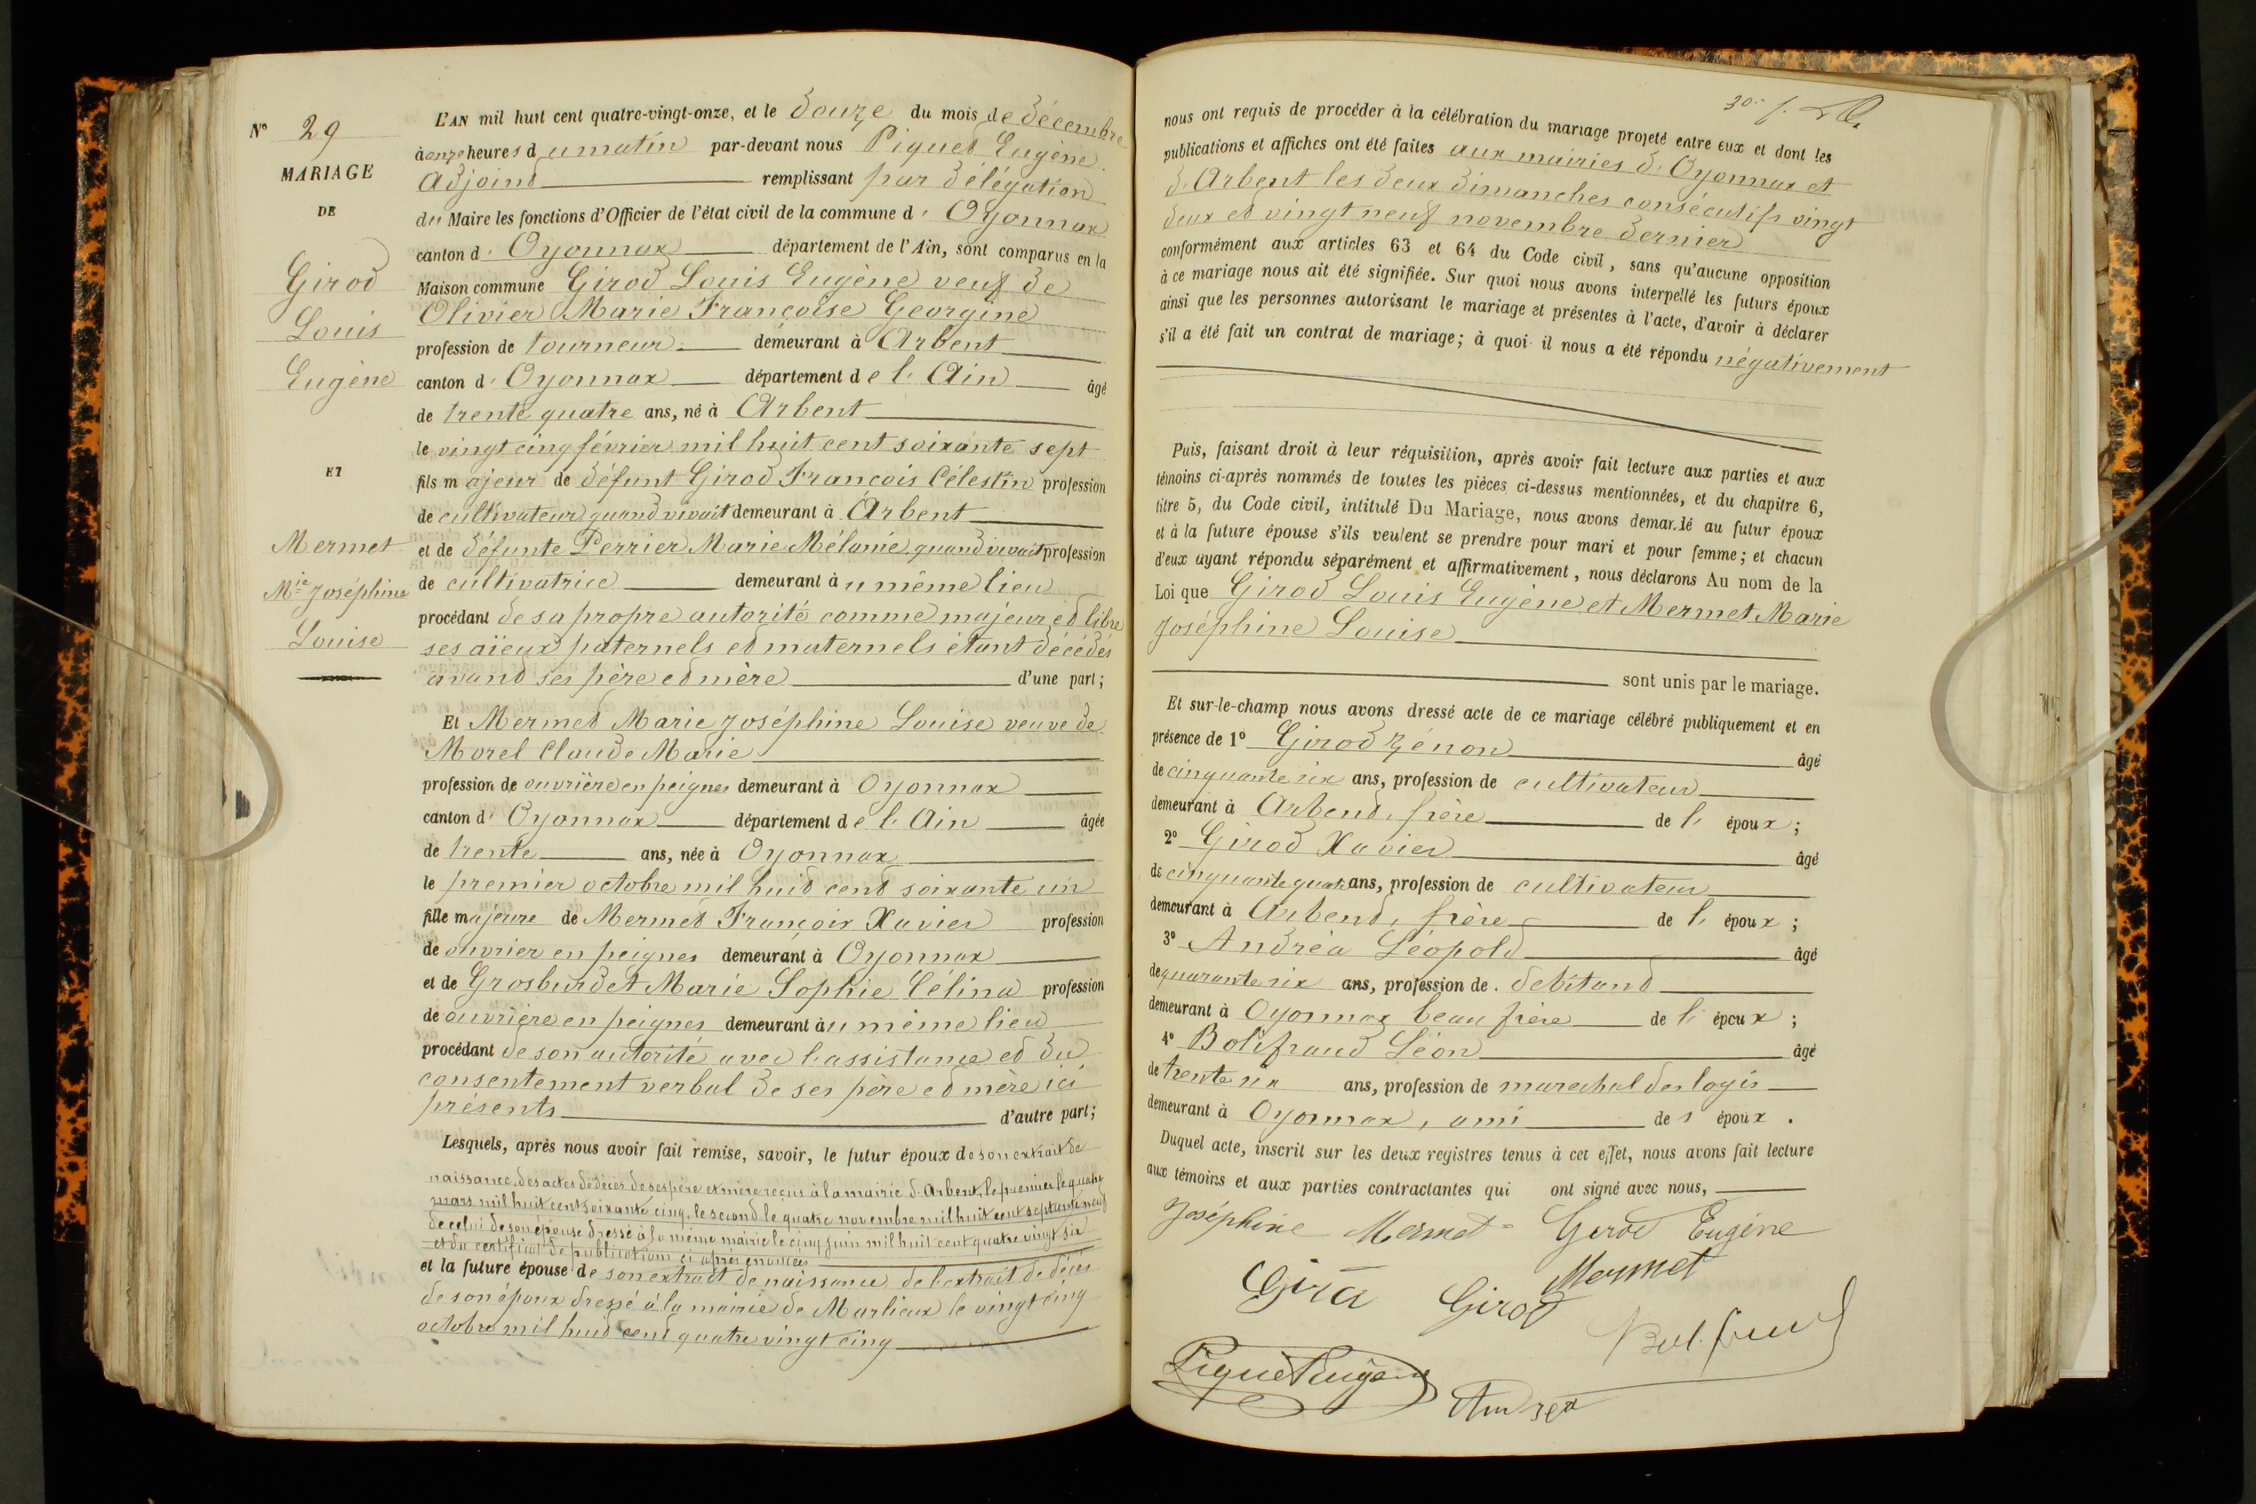 N° 29
MARIAGE
DE
Girod
Louis
Eugène
ET
Mermet
Mie Joséphine
Louise
L'AN mil huit cent quatre-vingt-onze, et le douze du mois de décembre
à onze heures du matin par-devant nous Piquet Eugène
Adjoint remplissant par délégation
du Maire les fonctions d'Officier de l'état civil de la commune d' Oyonnax
canton d' Oyonnax département de l'Ain, sont comparus en la
Maison commune Girod Louis Eugène veuf de
Olivier Marie Françoise Georgine
profession de tourneur demeurant à Arbent
canton d' Oyonnax département de l'Ain âgé
de trente quatre ans, né à Arbent
le vingt cinq février mil huit cent soixante sept
fils majeur de défunt Girod François Célestin profession
de cultivateur quand vivait demeurant à Arbent
et de défunte Perrier Marie Mélanie, quand vivait profession
de cultivatrice demeurant au même lieu
procédant de sa propre autorité comme majeur et libre
ses aïeux paternels et maternels étant décédés
avant ses père et mère d'une part;
Et Mermet Marie Joséphine Louise veuve de
Morel Claude Marie
profession de ouvrière en peignes demeurant à Oyonnax
canton d' Oyonnax département de l'Ain âgée
de trente ans, née à Oyonnax
le premier octobre mil huit cent soixante un
fille majeure de Mermet François Xavier profession
de ouvrier en peignes demeurant à Oyonnax
et de Grosburdet Marie Sophie Célina profession
de ouvrière en peignes demeurant au même lieu
procédant de son autorité avec l'assistance et du
consentement verbal de ses père et mère ici
présents d'autre part;
Lesquels, après nous avoir fait remise, savoir, le futur époux de son extrait de
naissance, des actes de décès de ses père et mère reçus à la mairie d'Arbent, le premier le quatre
mars mil huit cent soixante cinq, le second le quatre novembre mil huit cent septante neuf
de celui de son épouse dressé à la même mairie le cinq juin mil huit cent quatre vingt six
et du certificat de publications ci après énoncées
et la future épouse de son extrait de naissance de l'extrait de décès
de son époux dressé à la mairie de Marlieux le vingt cinq
octobre mil huit cent quatre vingt cinq
nous ont requis de procéder à la célébration du mariage projeté entre eux et dont les
publications et affiches ont été faites aux mairies d'Oyonnax et
d'Arbent les deux dimanches consécutifs vingt
deux et vingt neuf novembre dernier
conformément aux articles 63 et 64 du Code civil, sans qu'aucune opposition
à ce mariage nous ait été signifiée. Sur quoi nous avons interpellé les futurs époux
ainsi que les personnes autorisant le mariage et présentes à l'acte, d'avoir à déclarer
s'il a été fait un contrat de mariage; à quoi il nous a été répondu négativement
Puis, faisant droit à leur réquisition, après avoir fait lecture aux parties et aux
témoins ci-après nommés de toutes les pièces ci-dessus mentionnées, et du chapitre 6,
titre 5, du Code civil, intitulé Du Mariage, nous avons demandé au futur époux
et à la future épouse s'ils veulent se prendre pour mari et pour femme; et chacun
d'eux ayant répondu séparément et affirmativement, nous déclarons Au nom de la
Loi que Girod Louis Eugène et Mermet Marie
Joséphine Louise
sont unis par le mariage.
Et sur-le-champ nous avons dressé acte de ce mariage célébré publiquement et en
présence de 1° Girod Zénon âgé
de cinquante six ans, profession de cultivateur
demeurant à Arbent, frère de l' époux;
2° Girod Xavier âgé
de cinquante quatre ans, profession de cultivateur
demeurant à Arbent, frère de l' époux;
3° Andréa Léopold âgé
de quarante six ans, profession de débitant
demeurant à Oyonnax beau frère de l' époux;
4° Bolifraud Léon âgé
de trente six ans, profession de marechal des logis
demeurant à Oyonnax, ami de s époux.
Duquel acte, inscrit sur les deux registres tenus à cet effet, nous avons fait lecture
aux témoins et aux parties contractantes qui ont signé avec nous,
Joséphine Mermet Girod Eugène
Mermet
Girod
Piquet Eugène
Andréa